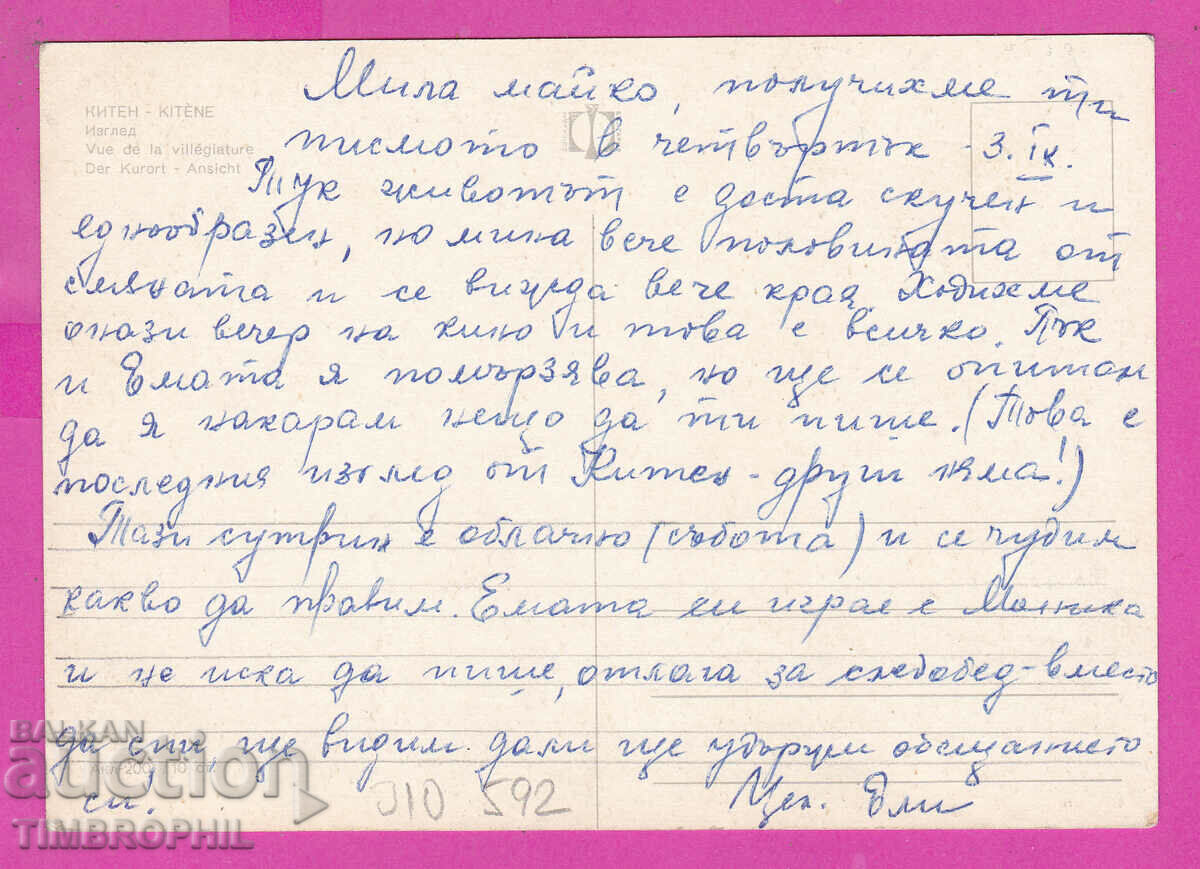 КИТЕН - KITÈNE
Изглед
Vue de la villégiature
Der Kurort - Ansicht
Мила майко, получихме ти
писмото в четвъртък - 3. IX.
Тук животът е доста скучен и
еднообразен, но мина вече половината от
смяната и се вижда вече края. Ходихме
онази вечер на кино и това е всичко. Пък
и Емата я помързява, но ще се опитам
да я накарам нещо да ти пише. (Това е
последния изглед от Китен - други няма!)
Тази сутрин е облачно (събота) и се чудим
какво да правим. Емата си играе с Моника
и не иска да пише, отлага за следобед - вместо
да спи ще видим дали ще удържи обещанието
си.
Цел. Ели
J10 592
BALKAN
auction
TIMBROPHIL